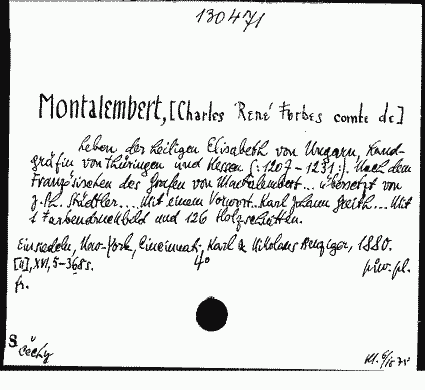 130471
Montalembert, [Charles René Forbes comte de]
Leben der heiligen Elisabeth von Ungarn, Land-
gräfin von Thüringen und Hessen (:1207-1231:). Nach dem
Französischen des Grafen von Montalembert... übersetzt von
J. Ph. Städtler... Mit einem Vorwort.. Karl Johann Greith... Mit
1 Farbendruckbild und 126 Holzschnitten.
Einsiedeln, New-York, Cincinnati, Karl & Nikolaus Benziger, 1880.
[4], XVI, 5-368 s. 4° piw. pl.
fr.
S Čechy